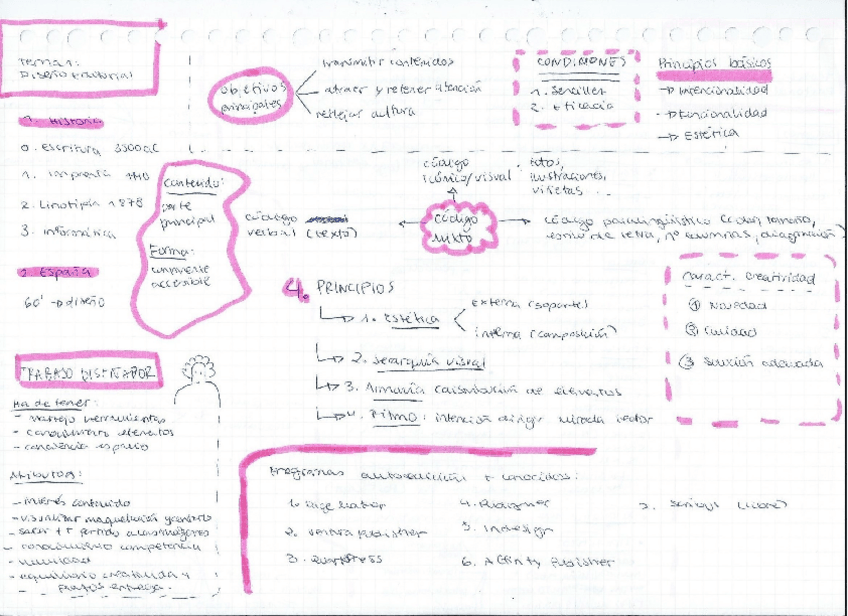 Tema 1:
Diseño Editorial
1. Historia
0. Escritura 3300aC
1. Imprenta 1440
2. Linotipia 1878
3. Informática
2. España
60' → diseño
Contenido:
parte
principal
Forma:
accesible
objetivos
principales
transmitir contenidos
atraer y retener atención
reflejar cultura
CONDICIONES
1. Sencillez
2. Eficacia
Principios básicos
→ Intencionalidad
→ Funcionalidad
→ Estética
código
icónico/visual
fotos,
ilustraciones,
viñetas...
código
verbal (texto)
código
mixto
código paralingüístico (color, tamaño,
estilo de letra, nº columnas, diagramación)
4. PRINCIPIOS
1. Estética
Externa (soporte)
interna (composición)
2. Jerarquía visual
3. Armonía de elementos
4. Ritmo: intención dirigir mirada lector
Caract. Creatividad
① Novedad
② Calidad
③ Solución adecuada
TRABAJO DISEÑADOR
Ha de tener:
- manejo herramientas
- conocimiento elementos
- conciencia espacio
Atributos:
- interés contenido
- visualizar maquetación
- sacar
- conocimiento competencia
- humildad
- equilibrio creatividad y
plazos entrega.
Programas autoedición + conocidos:
1. Page Maker
2. Ventura Publisher
3. QuarkXPress
4. Publisher
5. Indesign
6. Affinity Publisher
7. Scribus (libre)